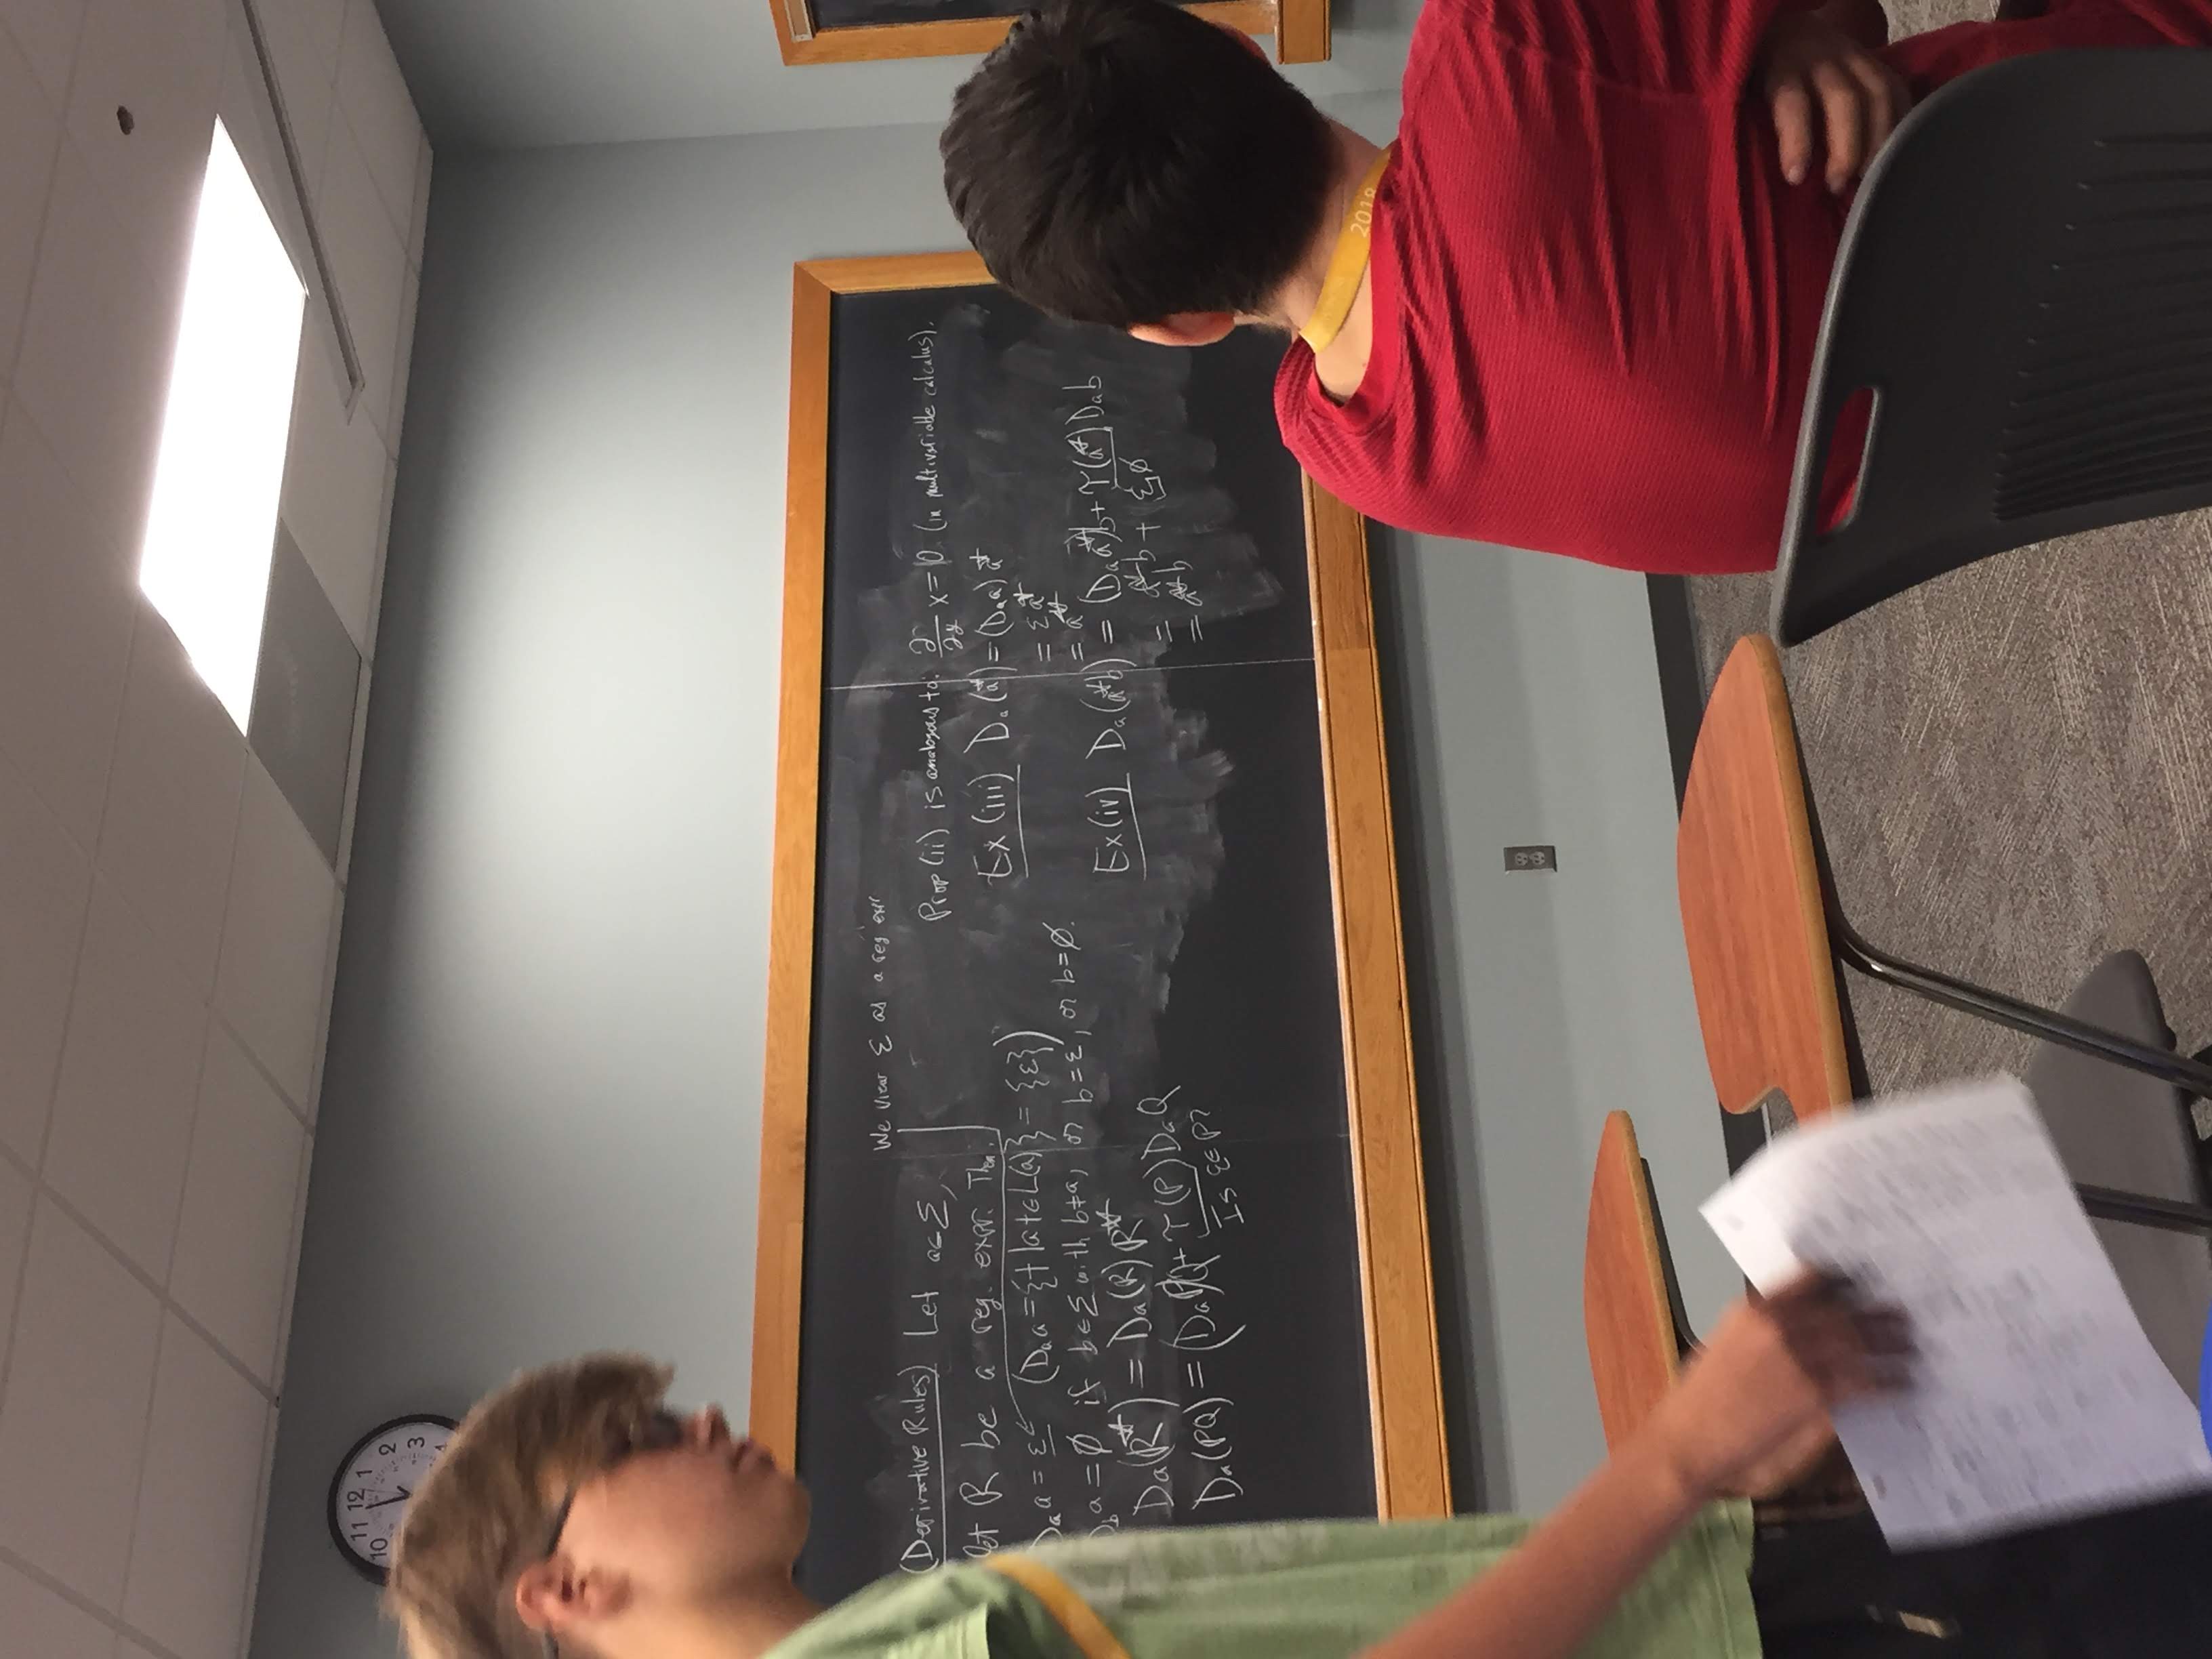 11 12 1
10 2
3
4
We view ε as a reg expr
(Derivative Rules) Let a∈Σ,
let R be a reg. expr. Then:
Dₐa = ε (Dₐa = {t | at ∈ L(a)} = {ε})
D_b a = ∅ if b∈Σ with b≠a, or b=ε, or b=∅.
Dₐ(R*) = Dₐ(R) R*
Dₐ(PQ) = (DₐP)Q + τ(P) DₐQ
Is ε∈P?
Prop (ii) is analogous to: ∂/∂y x = 0 (in multivariable calculus).
Ex (iii) Dₐ(a*) = (Dₐa) a*
= εa*
= a*
Ex (iv) Dₐ(a*b) = (Dₐa*)b + τ(a*) Dₐb
= a*b + ε∅
= a*b
2018